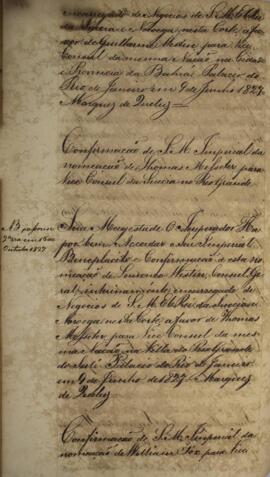 encarregado de Negocios de S. M. El Rei
da Suecia e Noroega, nesta Corte, a fa-
vor de Guilherme para Vice
Consul da mesma Nação na Cidade
e Provincia da Bahia. Palacio do
Rio de Janeiro em 9 de Junho 1827.
Marquez de Queluz
Confirmação de S. M. Imperial da
nomeação de Thomas Messiter para
Vice Consul da Suecia no Rio Grande
Sua Magestade O Imperador Ha
por bem Accordar o Seu Imperial
Beneplacito e Confirmação a esta no-
meação de Lourenço Westin, Consul Ge-
ral, interinamente, encarregado de
Negocios de S. M. El Rei da Suecia e
Noroega, nesta Corte, a favor de Thomas
Messiter para Vice Consul da mes-
ma Nação na Villa do Rio Grande
do Sul. Palacio do Rio de Janeiro
em 9 de Junho de 1827. Marquez
de Queluz
Confirmação de S. M. Imperial da
nomeação de William Fox para Vice